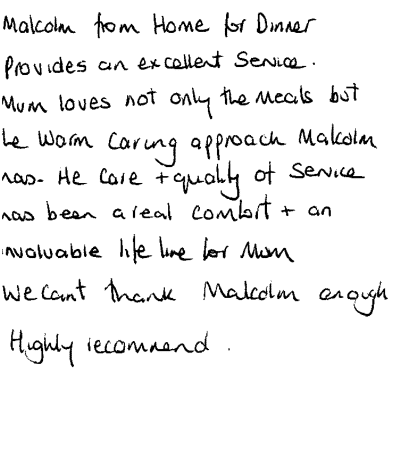 Malcolm from Home for Dinner
Provides an excellent Service.
Mum loves not only the meals but
he Warm Caring approach Malcolm
has. He Care + quality of Service
has been a real comfort + an
invaluable life line for Mum
We Cant thank Malcolm enough
Highly recommend.